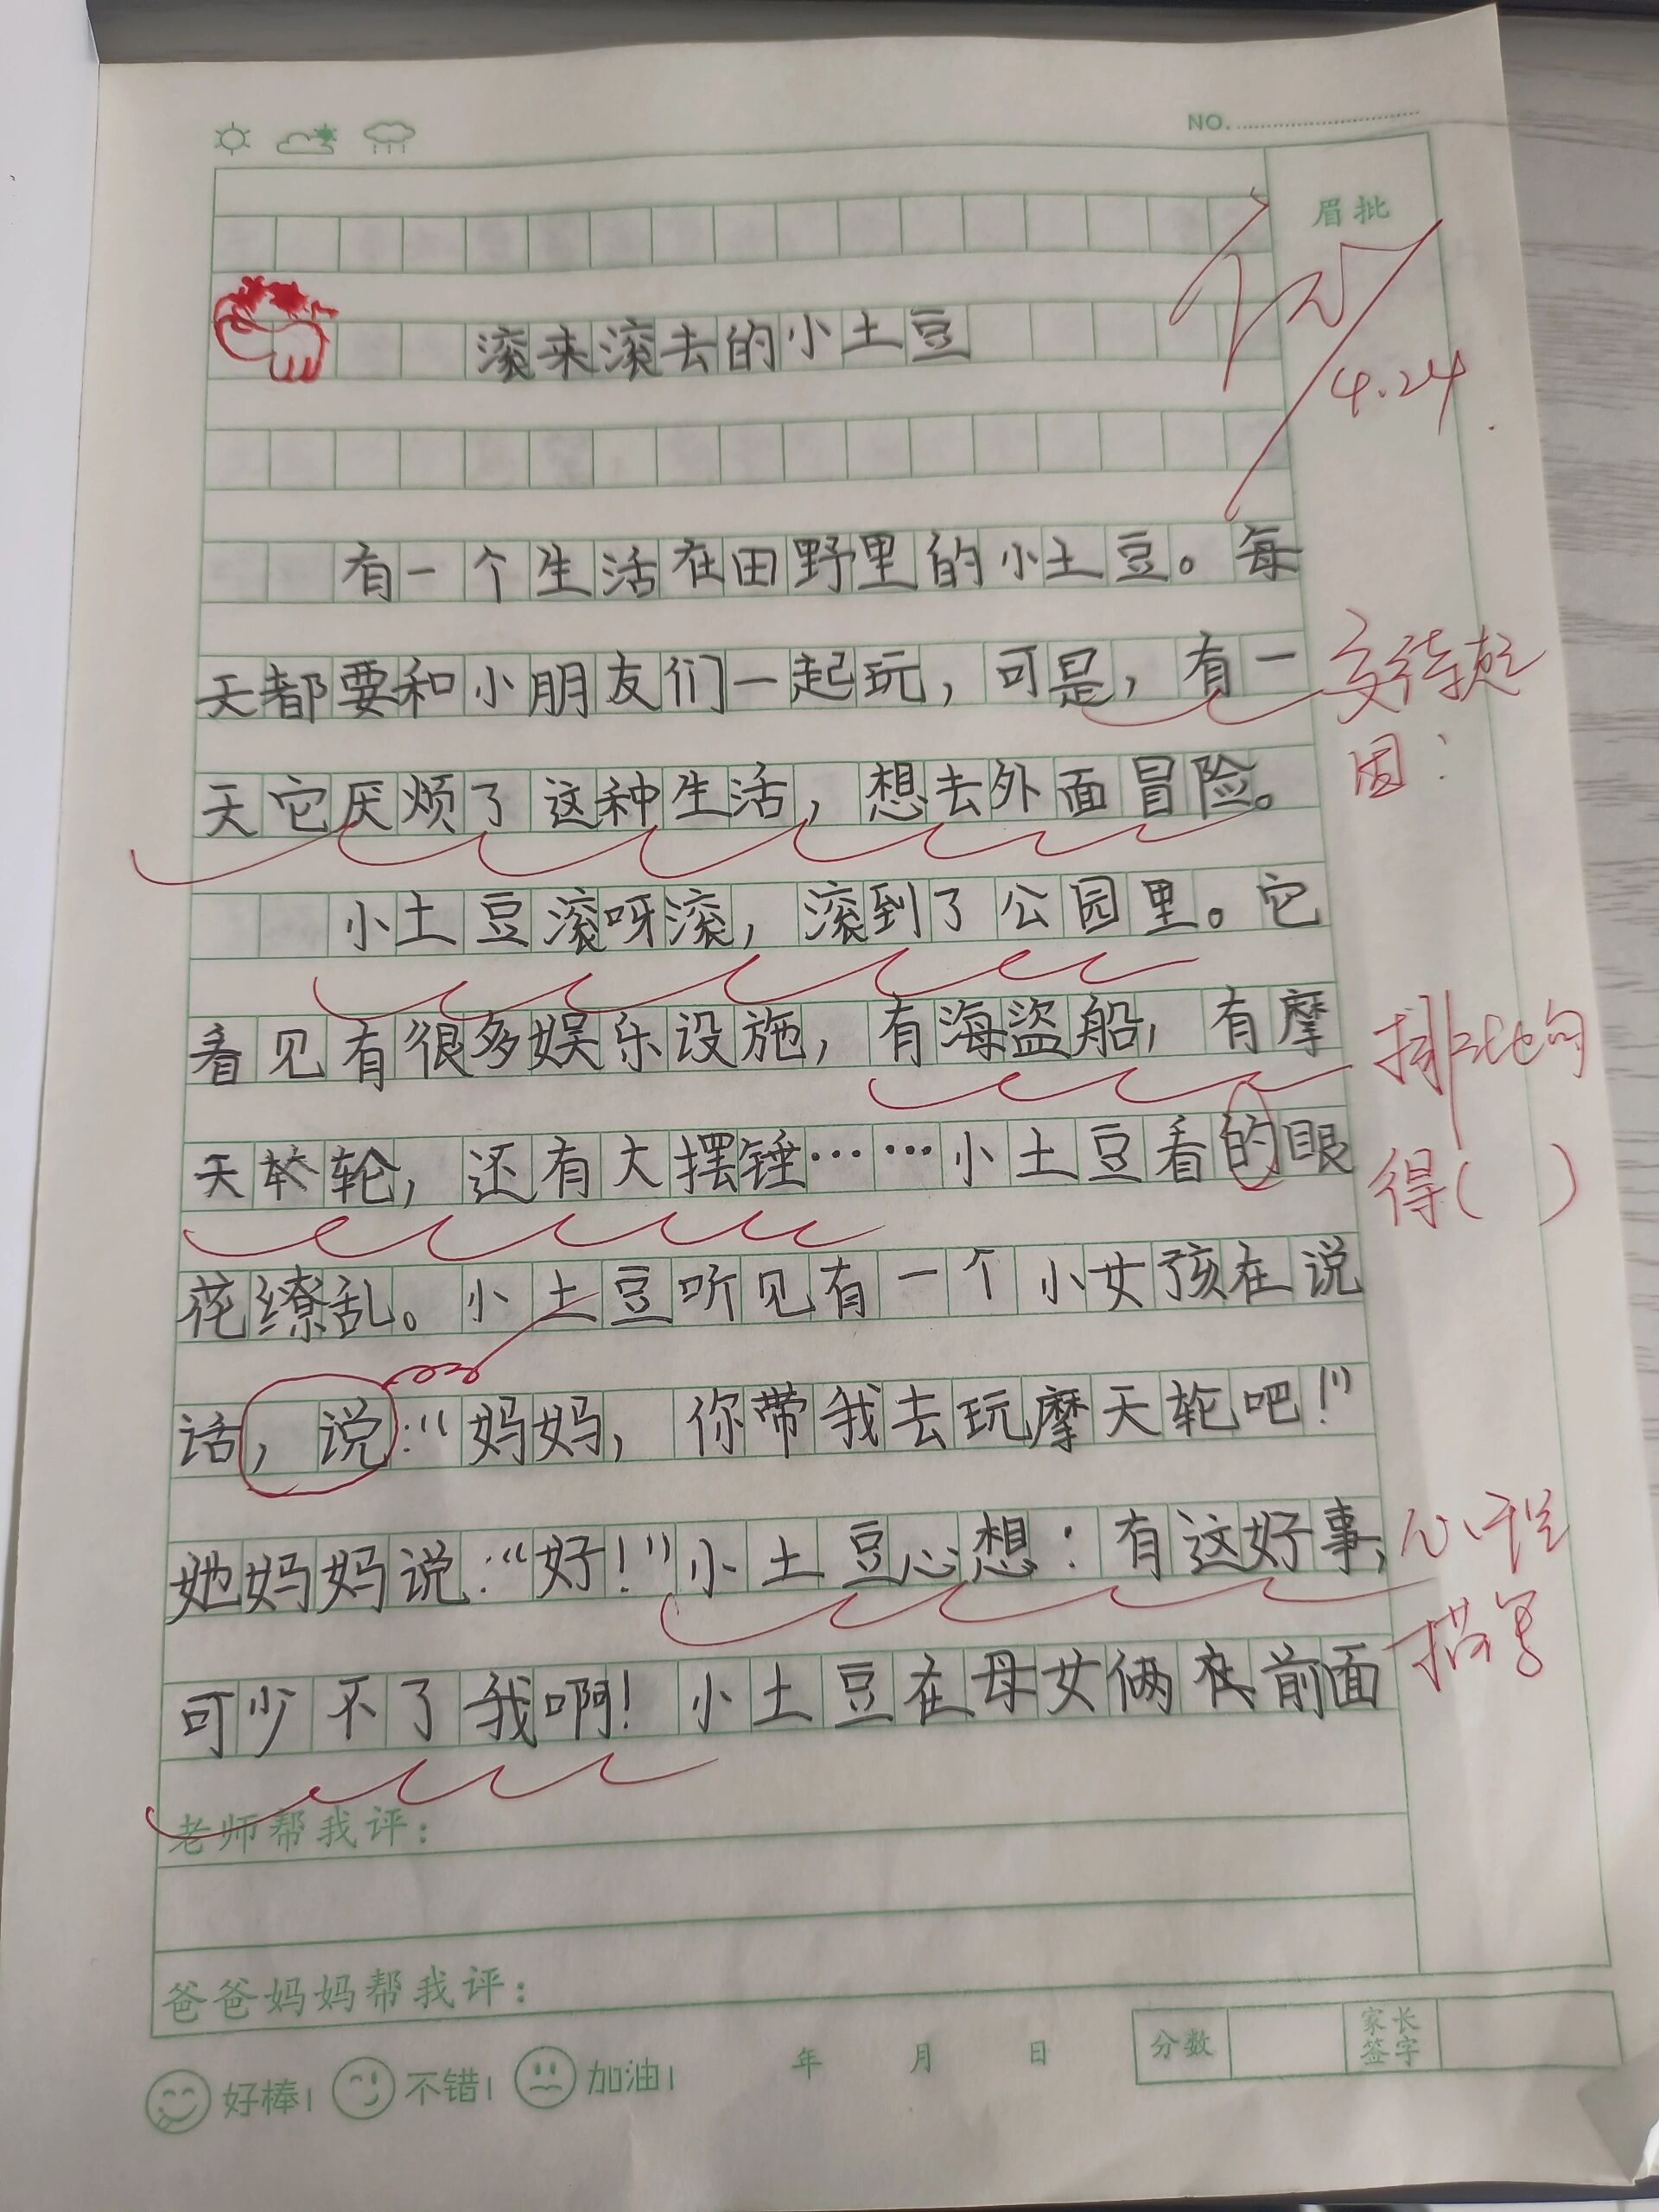 NO.
眉批
优
4.24
滚来滚去的小土豆
有一个生活在田野里的小土豆。每
天都要和小朋友们一起玩，可是，有一
交待起
因：
天它厌烦了这种生活，想去外面冒险。
小土豆滚呀滚，滚到了公园里。它
看见有很多娱乐设施，有海盗船，有摩
排比句
天轮，还有大摆锤……小土豆看的眼
得（ ）
花缭乱。小土豆听见有一个小女孩在说
话，说：“妈妈，你带我去玩摩天轮吧！”
她妈妈说：“好！”小土豆心想：有这好事，
心理
描写
可少不了我啊！小土豆在母女俩前面
老师帮我评：
爸爸妈妈帮我评：
好棒！ 不错！ 加油！ 年 月 日 分数 家长签字